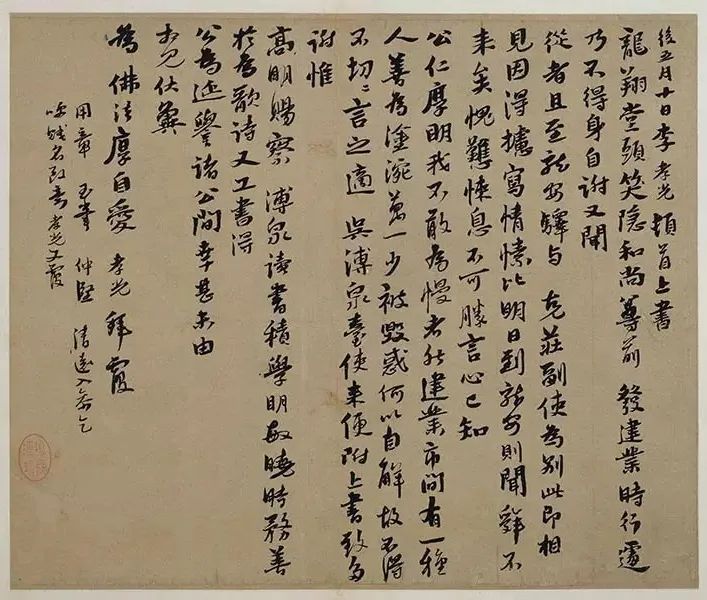 後五月十日李孝光頓首上書
龍翔堂頭笑隐和尚尊前 發建業時行遽
乃不得身自謝又聞
從者且至龍灣驛與 克莊副使為別此即相
見因得攄寫情愫比明日到龍灣則聞舜不
来矣愧難悚息不可勝言心已知
公仁厚明我不敢為慢者然建業市間有一種
人善為塗涴萬一少被毀惑何以自解故不得
不切切言之適 吳溥泉臺使来便附上書致多
謝惟
高明賜察 溥泉讀書積學明敏曉時務善
於為歌詩又工書得
公為延譽諸公間幸甚未由
前見伏冀
為佛法厚自愛 孝光拜覆
用章 玉章 仲堅 清遠
孝光又覆